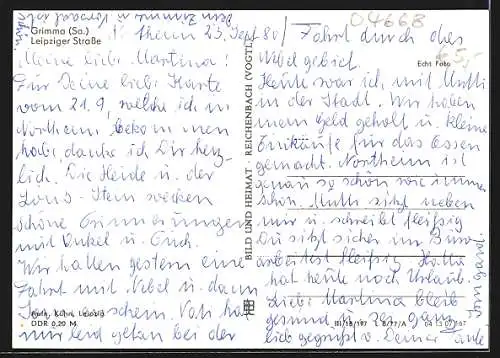 Grimma (Sa.)
Leipziger Straße
Northeim 23. Sept 80
Meine liebe Martina!
Für Deine liebe Karte
vom 21.9, welche ich in
Northeim bekommen
habe, danke ich Dir herz-
lich. Die Heide u. der
Löns-Stein wecken
schöne Erinnerungen
mit Onkel u. Euch.
Wir hatten gestern eine
Fahrt mit u. dann
mir leid getan bei der
Foto: Kühn, Leipzig
DDR 0,20 M
BILD UND HEIMAT REICHENBACH (VOGTL)
04668
Fahrt durch das
Nebelgebiet.
Echt Foto
Heute war ich mit Mutti
in der Stadt. Wir haben
man Geld geholt u kleine
Einkäufe für das Essen
gemacht. Northeim ist
genau so schön wie immer
schon. Mutti sitzt neben
mir u. schreibt fleißig
Du sitzt sicher im Büro
arbeitest fleißig.
hat heute noch Urlaub.
Liebe Martina bleib
gesund u. sei ganz
lieb gegrüßt v. Deiner Tante
III/18/197 L 8/77/A 04 13 07 167